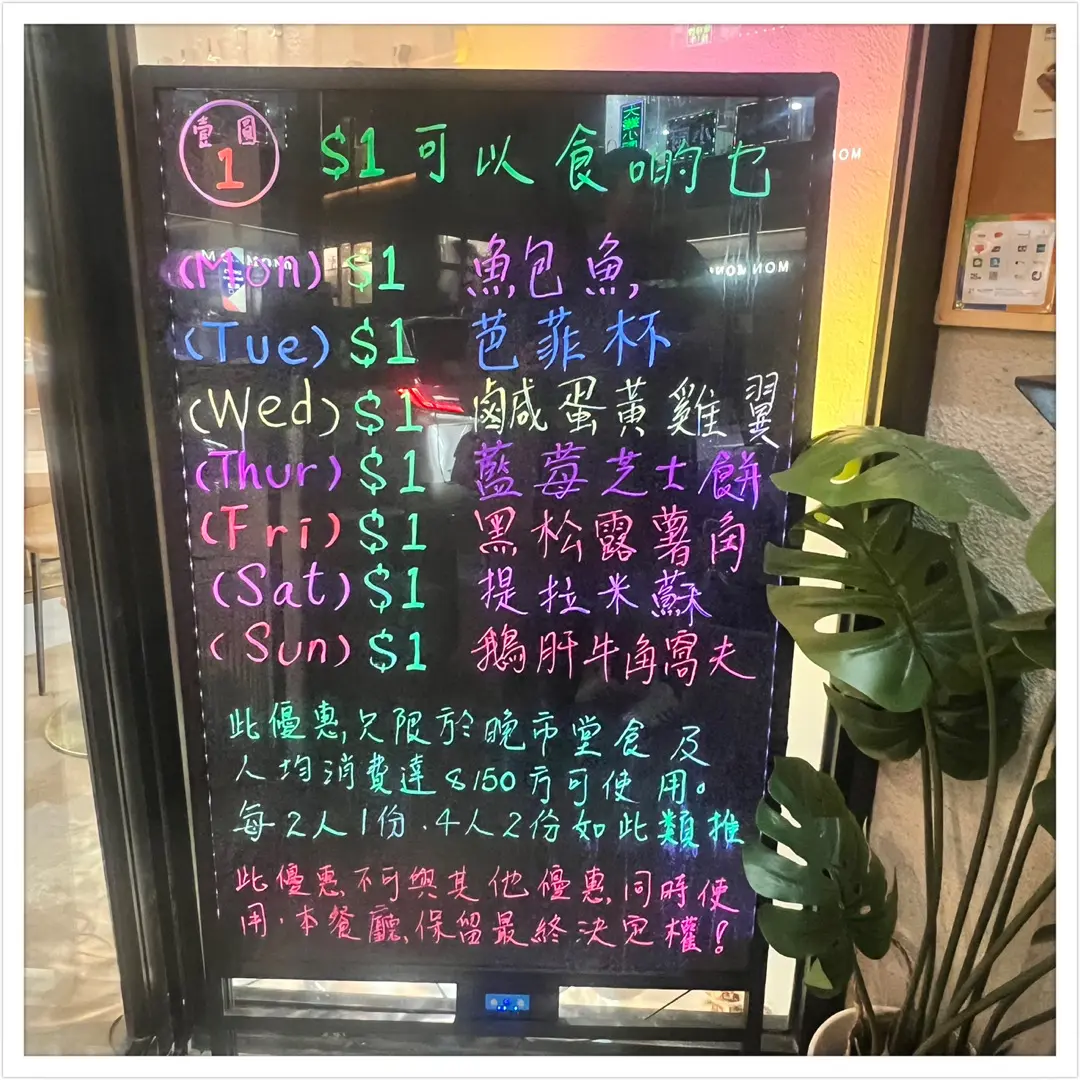 壹圓
1
$1可以食啲乜
(Mon) $1 鮑魚
(Tue) $1 芭菲杯
(Wed) $1 鹹蛋黃雞翼
(Thur) $1 藍莓芝士餅
(Fri) $1 黑松露薯角
(Sat) $1 提拉米蘇
(Sun) $1 鵝肝牛角窩夫
此優惠只限於晚市堂食及
人均消費達$150方可使用。
每2人1份.4人2份如此類推
此優惠不可與其他優惠同時使
用.本餐廳保留最終決定權!